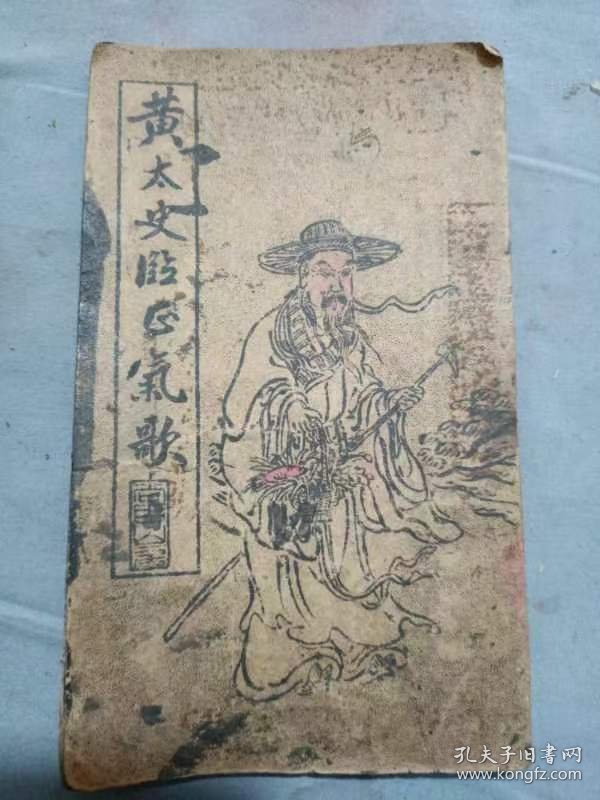 黄太史临正氣歌
孔夫子旧书网
www.kongfz.com